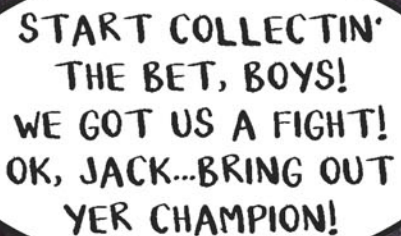 START COLLECTIN'
THE BET, BOYS!
WE GOT US A FIGHT!
OK, JACK...BRING OUT
YER CHAMPION!